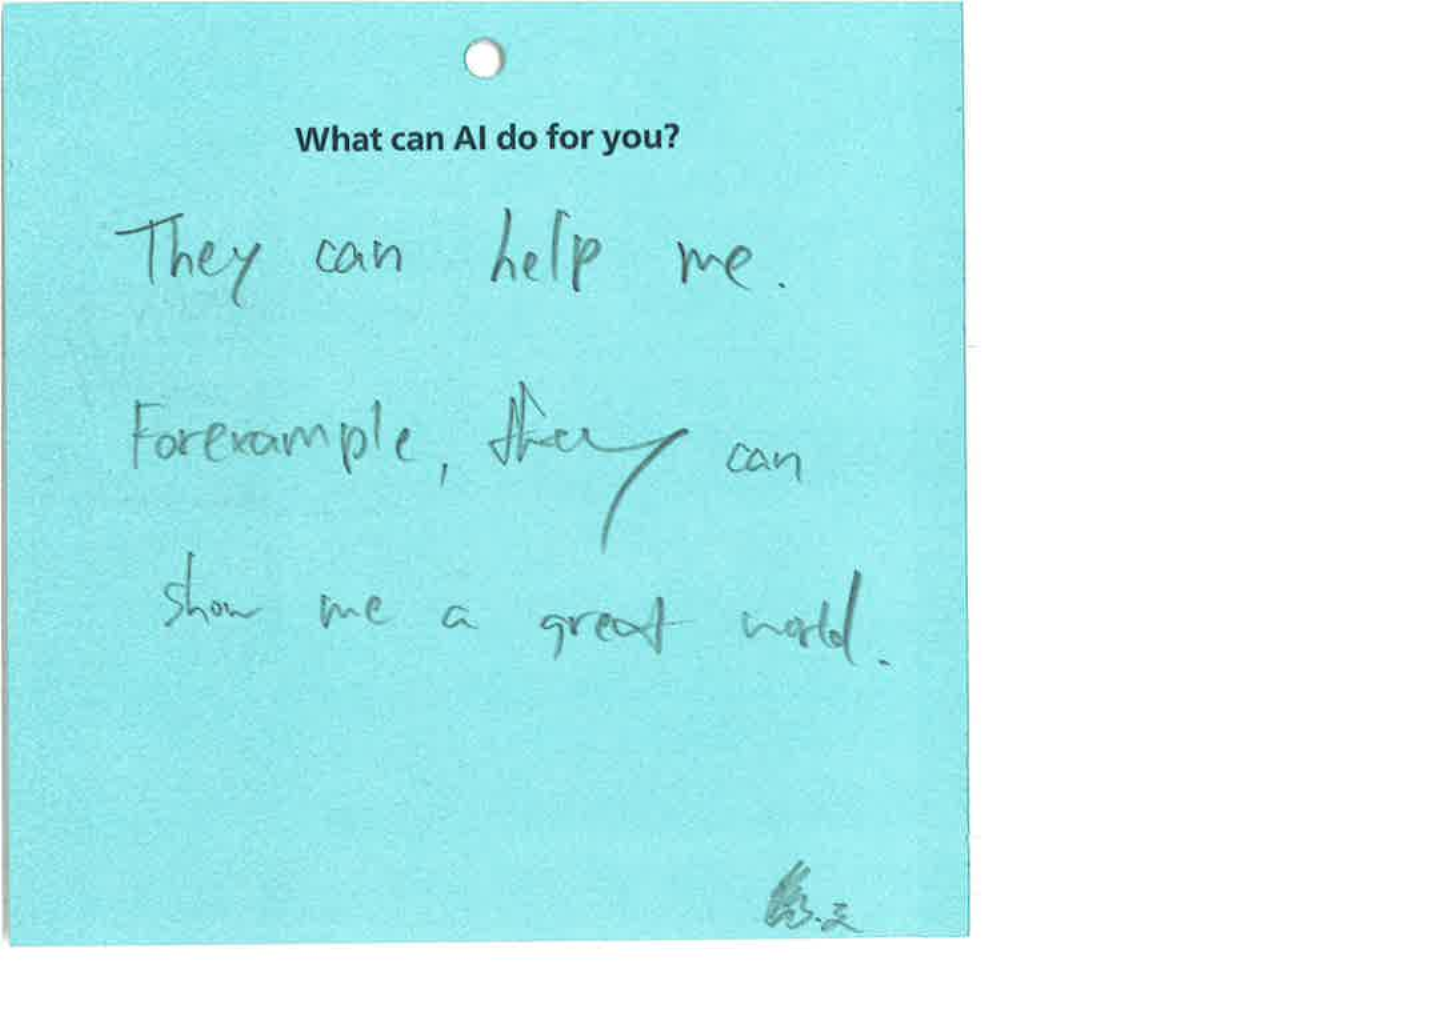 What can AI do for you?
They can help me.
Forexample, they can
show me a great world.